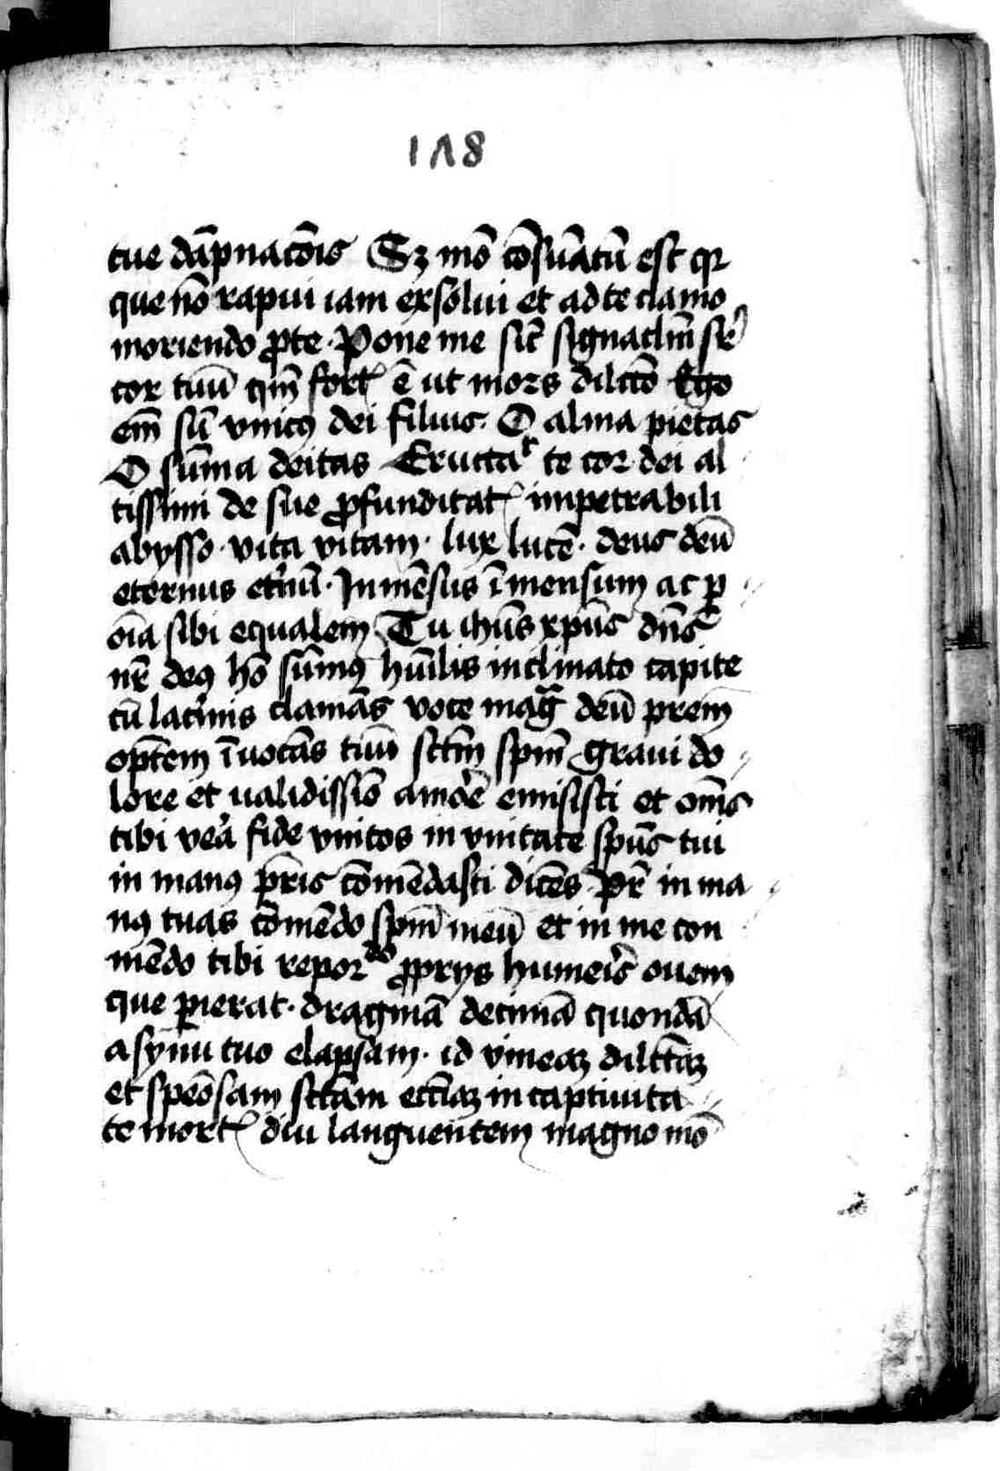 1Λ8
tue dāpnacōis Sꝫ mō cōsūatū est qꝛ
que nō rapui iam exsolui et ad te clamo
moriendo ꝓ te · Pone me sic̄ signaclm̄ sr̄
cor tuū qm̄ fort ē ut mors dilcc̄o Ego
em̄ sū vnicꝰ dei filius · O alma pietas
O sūma deitas Eructat te cor dei al
tissimi de sue ꝓfunditat impetrabili
abysso · vita vitam · lux lucē · deus deū
eternus etn̄ū · Inmēsus īmensum ac ꝑ
oīa sibi equalem Tu ihūs xp̄us dn̄s
nr̄ deꝰ hō sūmꝰ hūilis inclinato capite
cū lacīmis clamās voce mag deū prēm
opt̄em īuocās tuū sct̄m spm̄ graui do
lore et ualidissīo amōē emisisti et om̄s
tibi vēa fide vnitos in vnitate spūs tui
in manꝰ pr̄is cōmēdasti dicēs Pr̄ in ma
nꝰ tuas cōmēdo spm̄ meū et in me con
mēdo tibi repoꝛᵈᵒ ꝓprys humeis̄ ouem
que ꝑierat · dragmā decimā quondā
a synu tuo elapsam · id vineaꝫ dilc̄taꝫ
et speōsam sct̄am ecc̄iaꝫ in captiuita
te mort diu languentem magno mō